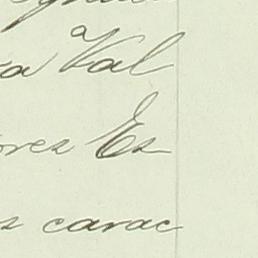 a Val
res Es
s carac